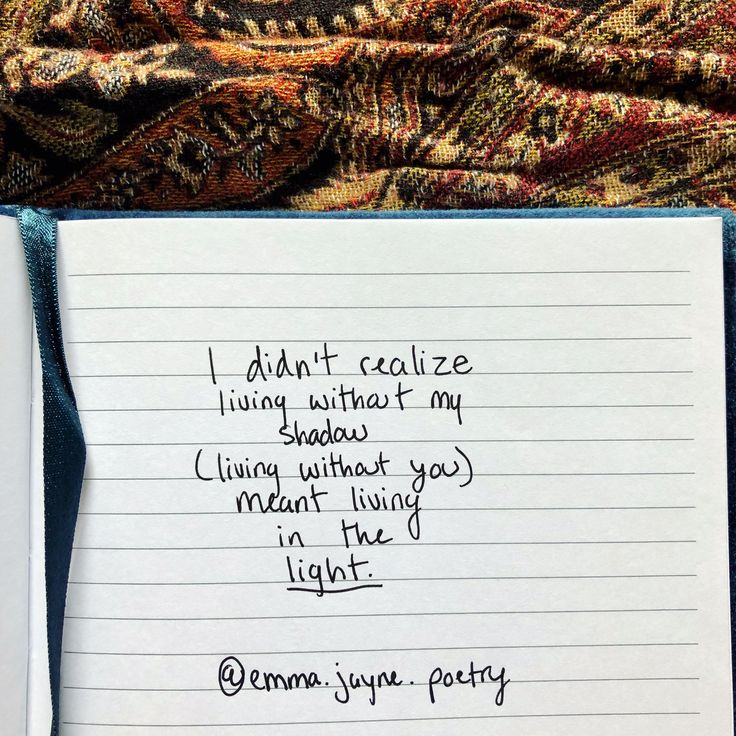 I didn't realize
living without my
shadow
(living without you)
meant living
in the
light.
@emma.jayne.poetry